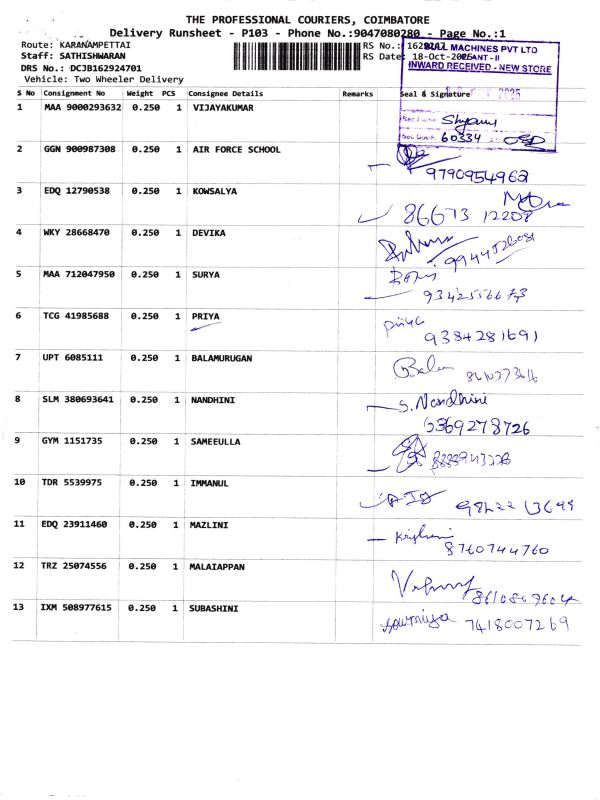 THE PROFESSIONAL COURIERS, COIMBATORE
Delivery Runsheet - P103 - Phone No.:9047080280 - Page No.:1
Route: KARANAMPETTAI
Staff: SATHISHWARAN
DRS No.: DCJB162924701
Vehicle: Two Wheeler Delivery
RS No.:
RS Date: 18-Oct-2025
MACHINES PVT LTD
PLANT - II
INWARD RECEIVED - NEW STORE
2025
60334
S No Consignment No Weight PCS Consignee Details Remarks Seal & Signature
1 MAA 9000293632 0.250 1 VIJAYAKUMAR
2 GGN 900987308 0.250 1 AIR FORCE SCHOOL
9790954962
3 EDQ 12790538 0.250 1 KOWSALYA
86673 12208
4 WKY 28668470 0.250 1 DEVIKA
5 MAA 712047950 0.250 1 SURYA
9342556673
6 TCG 41985688 0.250 1 PRIYA
Priya
9384281691
7 UPT 6085111 0.250 1 BALAMURUGAN
8 SLM 380693641 0.250 1 NANDHINI
S. Nandhini
6369278726
9 GYM 1151735 0.250 1 SAMEEULLA
10 TDR 5539975 0.250 1 IMMANUL
11 EDQ 23911460 0.250 1 MAZLINI
8760744760
12 TRZ 25074556 0.250 1 MALAIAPPAN
13 IXM 508977615 0.250 1 SUBASHINI
Sowmiya 7418007269